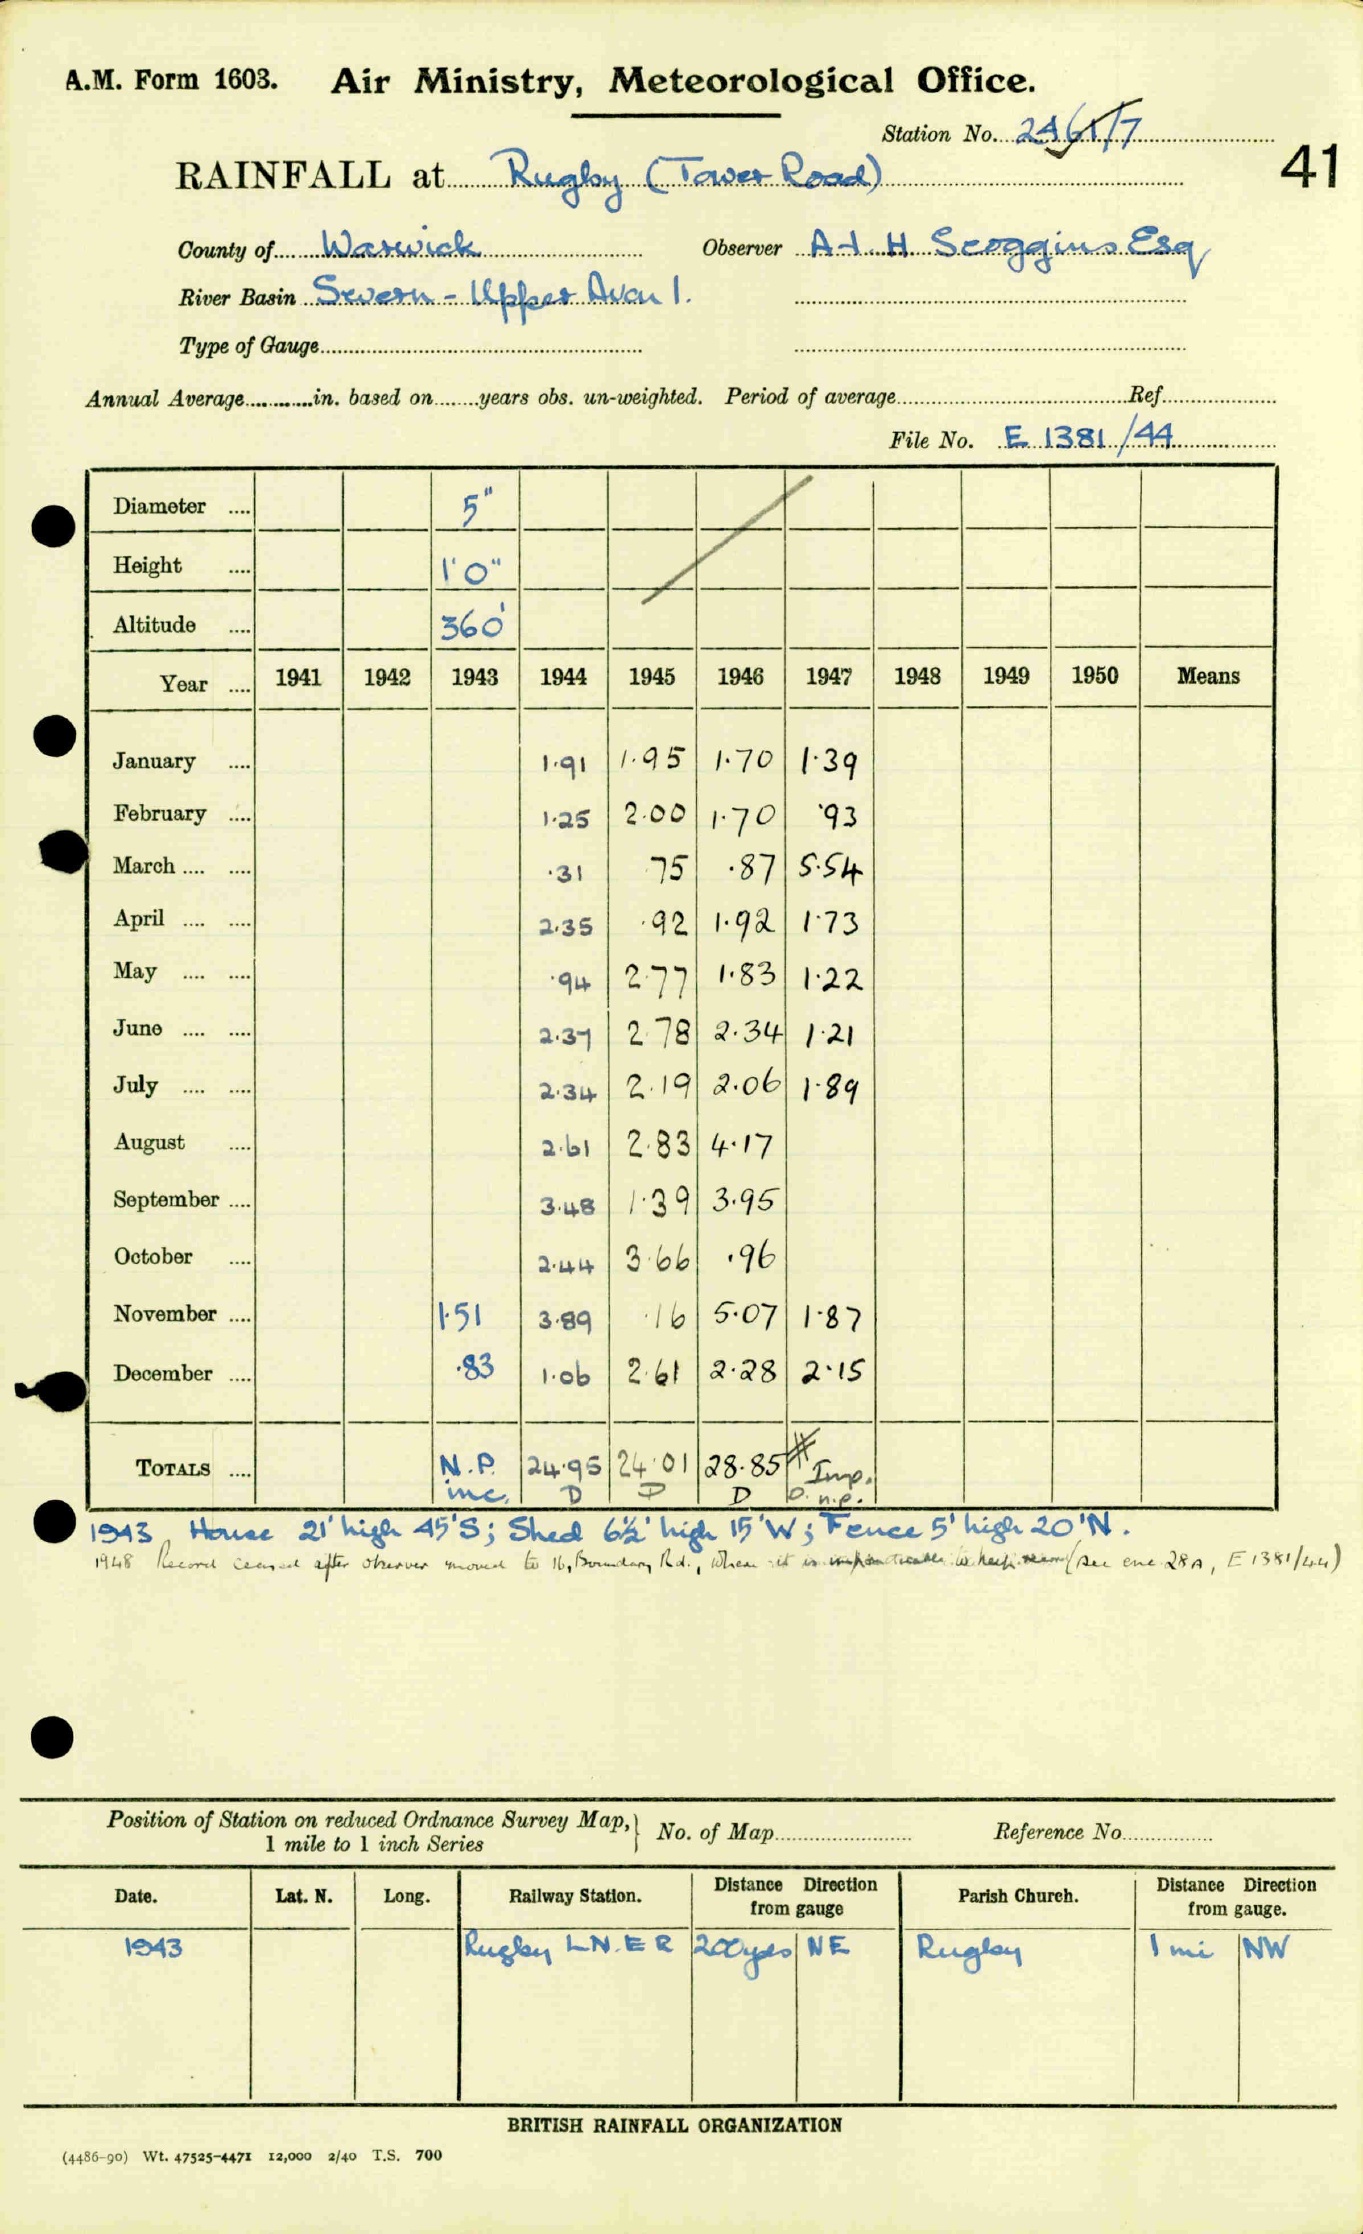 A.M. Form 1603. Air Ministry, Meteorological Office.
Station No. 2461/7
41
RAINFALL at Rugby (Tower Road)
County of Warwick Observer A. H. Scoggins Esq
River Basin Severn - Upper Avon 1.
Type of Gauge
Annual Average in. based on years obs. un-weighted. Period of average Ref.
File No. E 1381/44
Diameter 5"
Height 1'0"
Altitude 360'
Year 1941 1942 1943 1944 1945 1946 1947 1948 1949 1950 Means
January 1.91 1.95 1.70 1.39
February 1.25 2.00 1.70 .93
March .31 75 .87 5.54
April 2.35 .92 1.92 1.73
May .94 2.77 1.83 1.22
June 2.37 2.78 2.34 1.21
July 2.34 2.19 2.06 1.89
August 2.61 2.83 4.17
September 3.48 1.39 3.95
October 2.44 3.66 .96
November 1.51 3.89 .16 5.07 1.87
December .83 1.06 2.61 2.28 2.15
TOTALS N.P. inc. 24.95 D 24.01 D 28.85 D Imp. O. n.p.
1943 House 21' high 45'S; Shed 6½' high 15'W; Fence 5' high 20'N.
1948 Record ceased after observer moved to 16, Boundary Rd., where it is impracticable to keep record (see enc 28A, E 1381/44)
Position of Station on reduced Ordnance Survey Map, 1 mile to 1 inch Series } No. of Map Reference No
Date. Lat. N. Long. Railway Station. Distance Direction from gauge Parish Church. Distance Direction from gauge.
1943 Rugby L.N.E R 200yds NE Rugby 1 mi NW
BRITISH RAINFALL ORGANIZATION
(4486-90) Wt. 47525-4471 12,000 2/40 T.S. 700